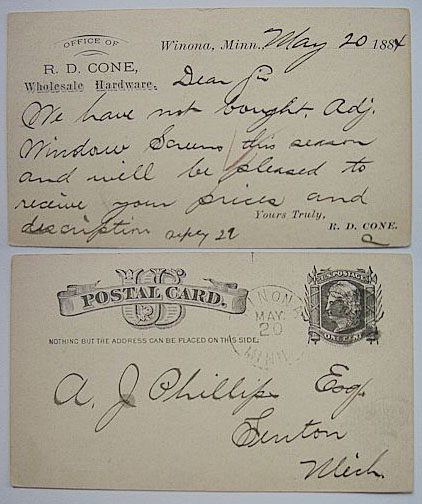 OFFICE OF
R. D. CONE,
Wholesale Hardware,
Winona, Minn., May 20 1884
Dear Sir
We have not bought Adj.
Window Screens this season
and will be pleased to
receive your prices and
description
Yours Truly,
R. D. CONE.
US
POSTAL CARD.
NOTHING BUT THE ADDRESS CAN BE PLACED ON THIS SIDE.
WINONA
MAY
20
MINN
U.S. POSTAGE
ONE CENT
A. J. Phillips Esq.
Fenton
Mich.